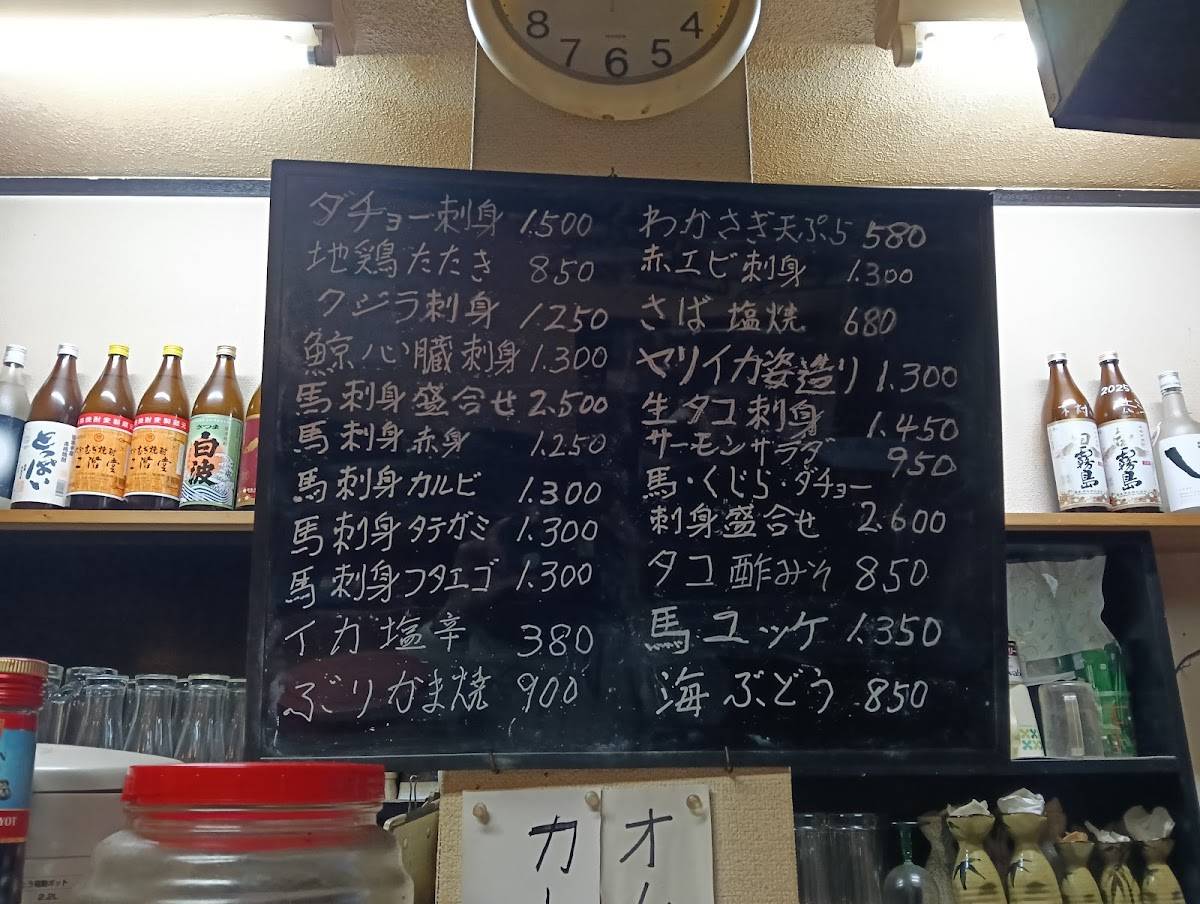 8 7 6 5 4
ダチョー刺身 1.500
地鶏たたき 850
クジラ刺身 1.250
鯨心臓刺身 1.300
馬刺身盛合せ 2.500
馬刺身赤身 1.250
馬刺身カルビ 1.300
馬刺身タテガミ 1.300
馬刺身フタエゴ 1.300
イカ塩辛 380
ぶりかま焼 900
わかさぎ天ぷら 580
赤エビ刺身 1.300
さば塩焼 680
ヤリイカ姿造り 1.300
生タコ刺身 1.450
サーモンサラダ 950
馬・くじら・ダチョー
刺身盛合せ 2.600
タコ酢みそ 850
馬ユッケ 1.350
海ぶどう 850
とっぱい
二階堂
二階堂
さつま
白波
霧島
2025
霧島
カ
オ
電動ポット
2.2L